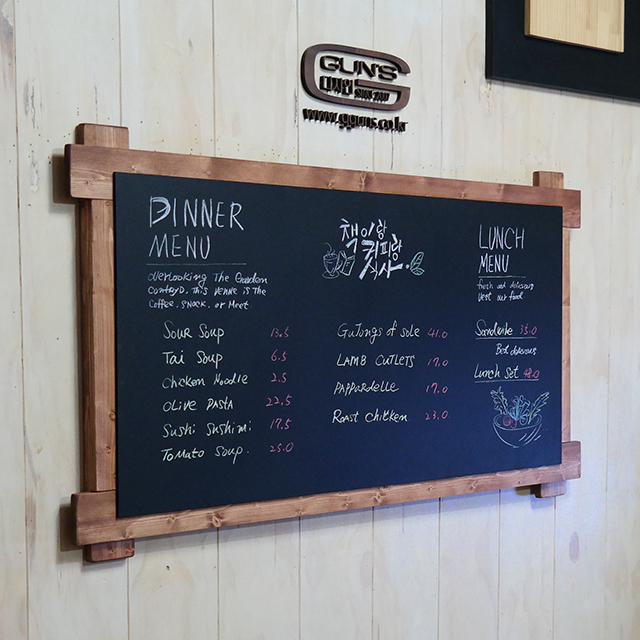 GUN'S
www.gguns.co.kr
DINNER
MENU
OVERLOOKING THE Garden
Contryd. This venne is The
Coffee, snack, or Meet
Sour Soup 13.5
Tai Soup 6.5
Chicken Noodle 2.5
OLive PASTA 22.5
Sushi Sushimi 17.5
Tomato Soup. 25.0
책이랑
커피랑
식사.
GuJongs of sole 41.0
LAMB CUTLETS 17.0
PAPPARdelle 17.0
Roast Chicken 23.0
LUNCH
MENU
fresh and delicious
Vest our food
Sandwile 35.0
Best delicious
Lunch Set 48.0